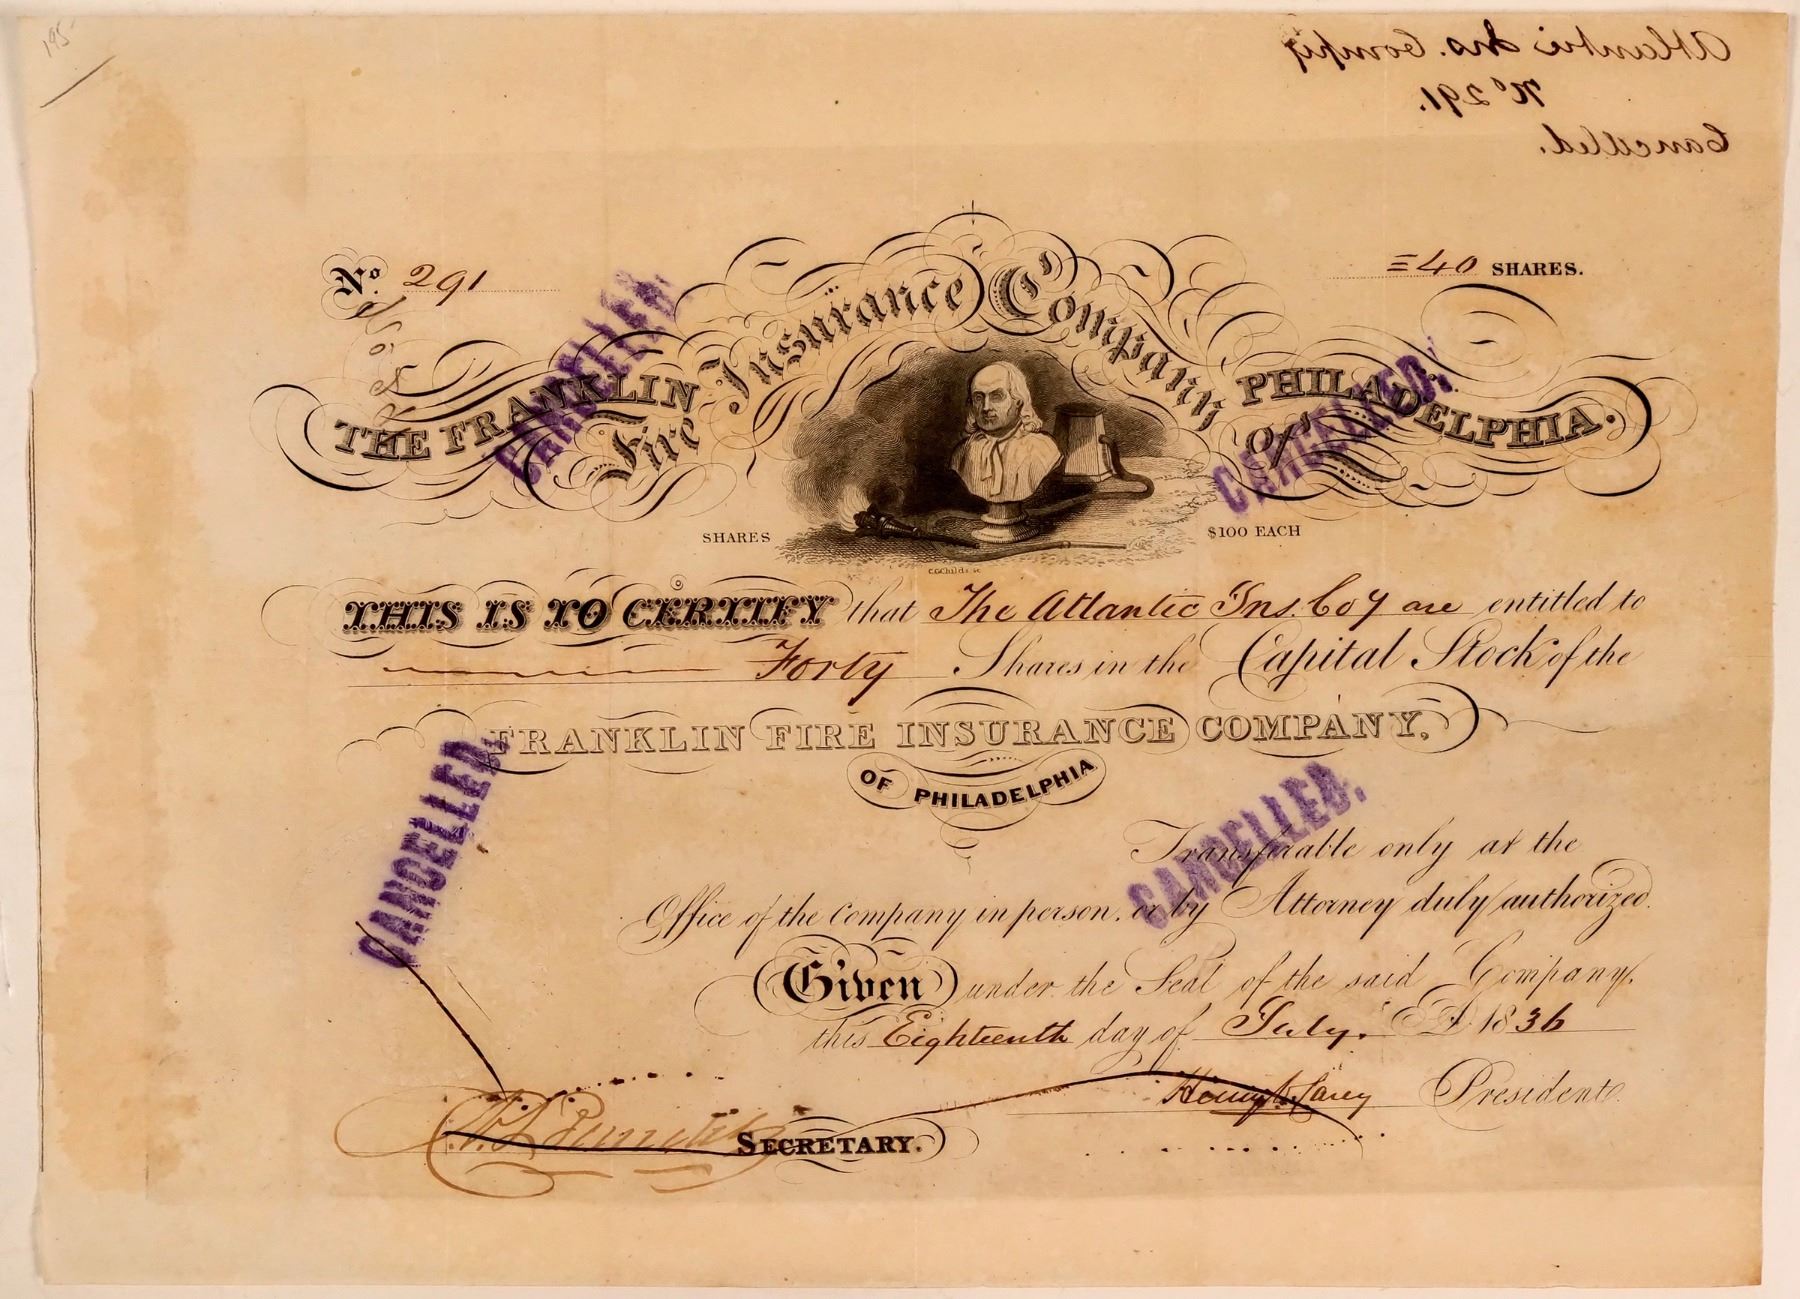 195
Atlantic Ins. Compy
No 291.
Cancelled.
No. 291
=40 SHARES.
THE FRANKLIN Fire Insurance Company Of PHILADELPHIA.
CANCELLED.
CANCELLED.
SHARES $100 EACH
C.G.Childs sc
THIS IS TO CERTIFY that The Atlantic Ins. Coy are entitled to
Forty Shares in the Capital Stock of the
FRANKLIN FIRE INSURANCE COMPANY.
OF PHILADELPHIA
CANCELLED.
CANCELLED.
Transferable only at the
Office of the Company in person, or by Attorney duly authorized.
Given under the Seal of the said Company,
this Eighteenth day of July. AD 1836
President.
SECRETARY.